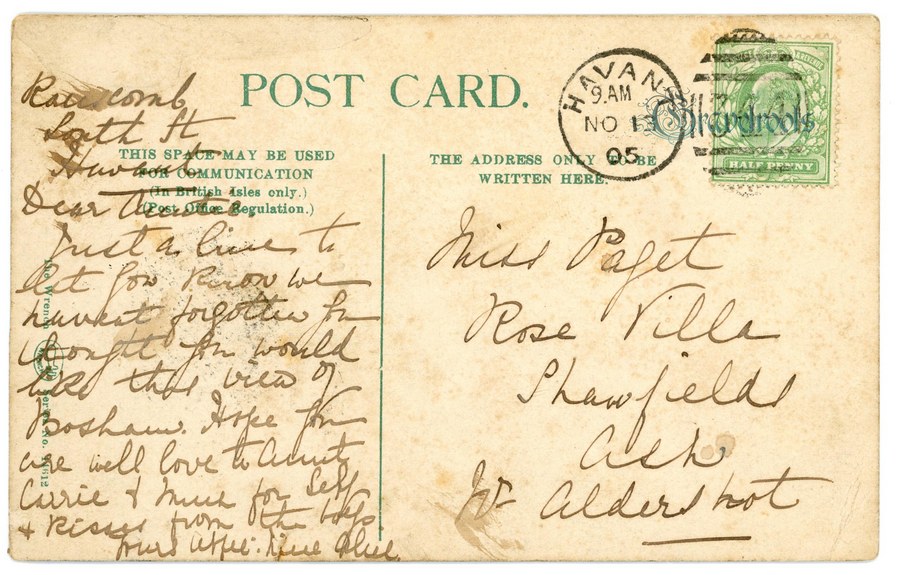 POST CARD.
THIS SPACE MAY BE USED
FOR COMMUNICATION
(In British Isles only.)
(Post Office Regulation.)
THE ADDRESS ONLY TO BE
WRITTEN HERE.
HAVANT
9.AM
NO 13
05
HALF PENNY
South St
Havant
Dear Auntie
Just a line to
let you know we
havent forgotten you
thought you would
like this view of
Bosham. Hope you
are well love to Aunty
Carrie & Much for Self
& Kisses from the boys
Yours affec.
Miss Paget
Rose Villa
Shawfields
Ash
Nr Aldershot
The Wrench Series, No.